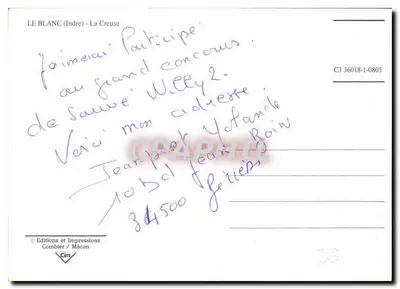 LE BLANC (Indre) - La Creuse
J'aimerai Participé
au grand concours.
de Sauvé Willy 2.
Voici mon adresse
Jeanpiet Yolande
10 Bd Jean Bain
34500 Béziers
C3 36018-1-0805
© Editions et Impressions
Combier / Mâcon
Cim